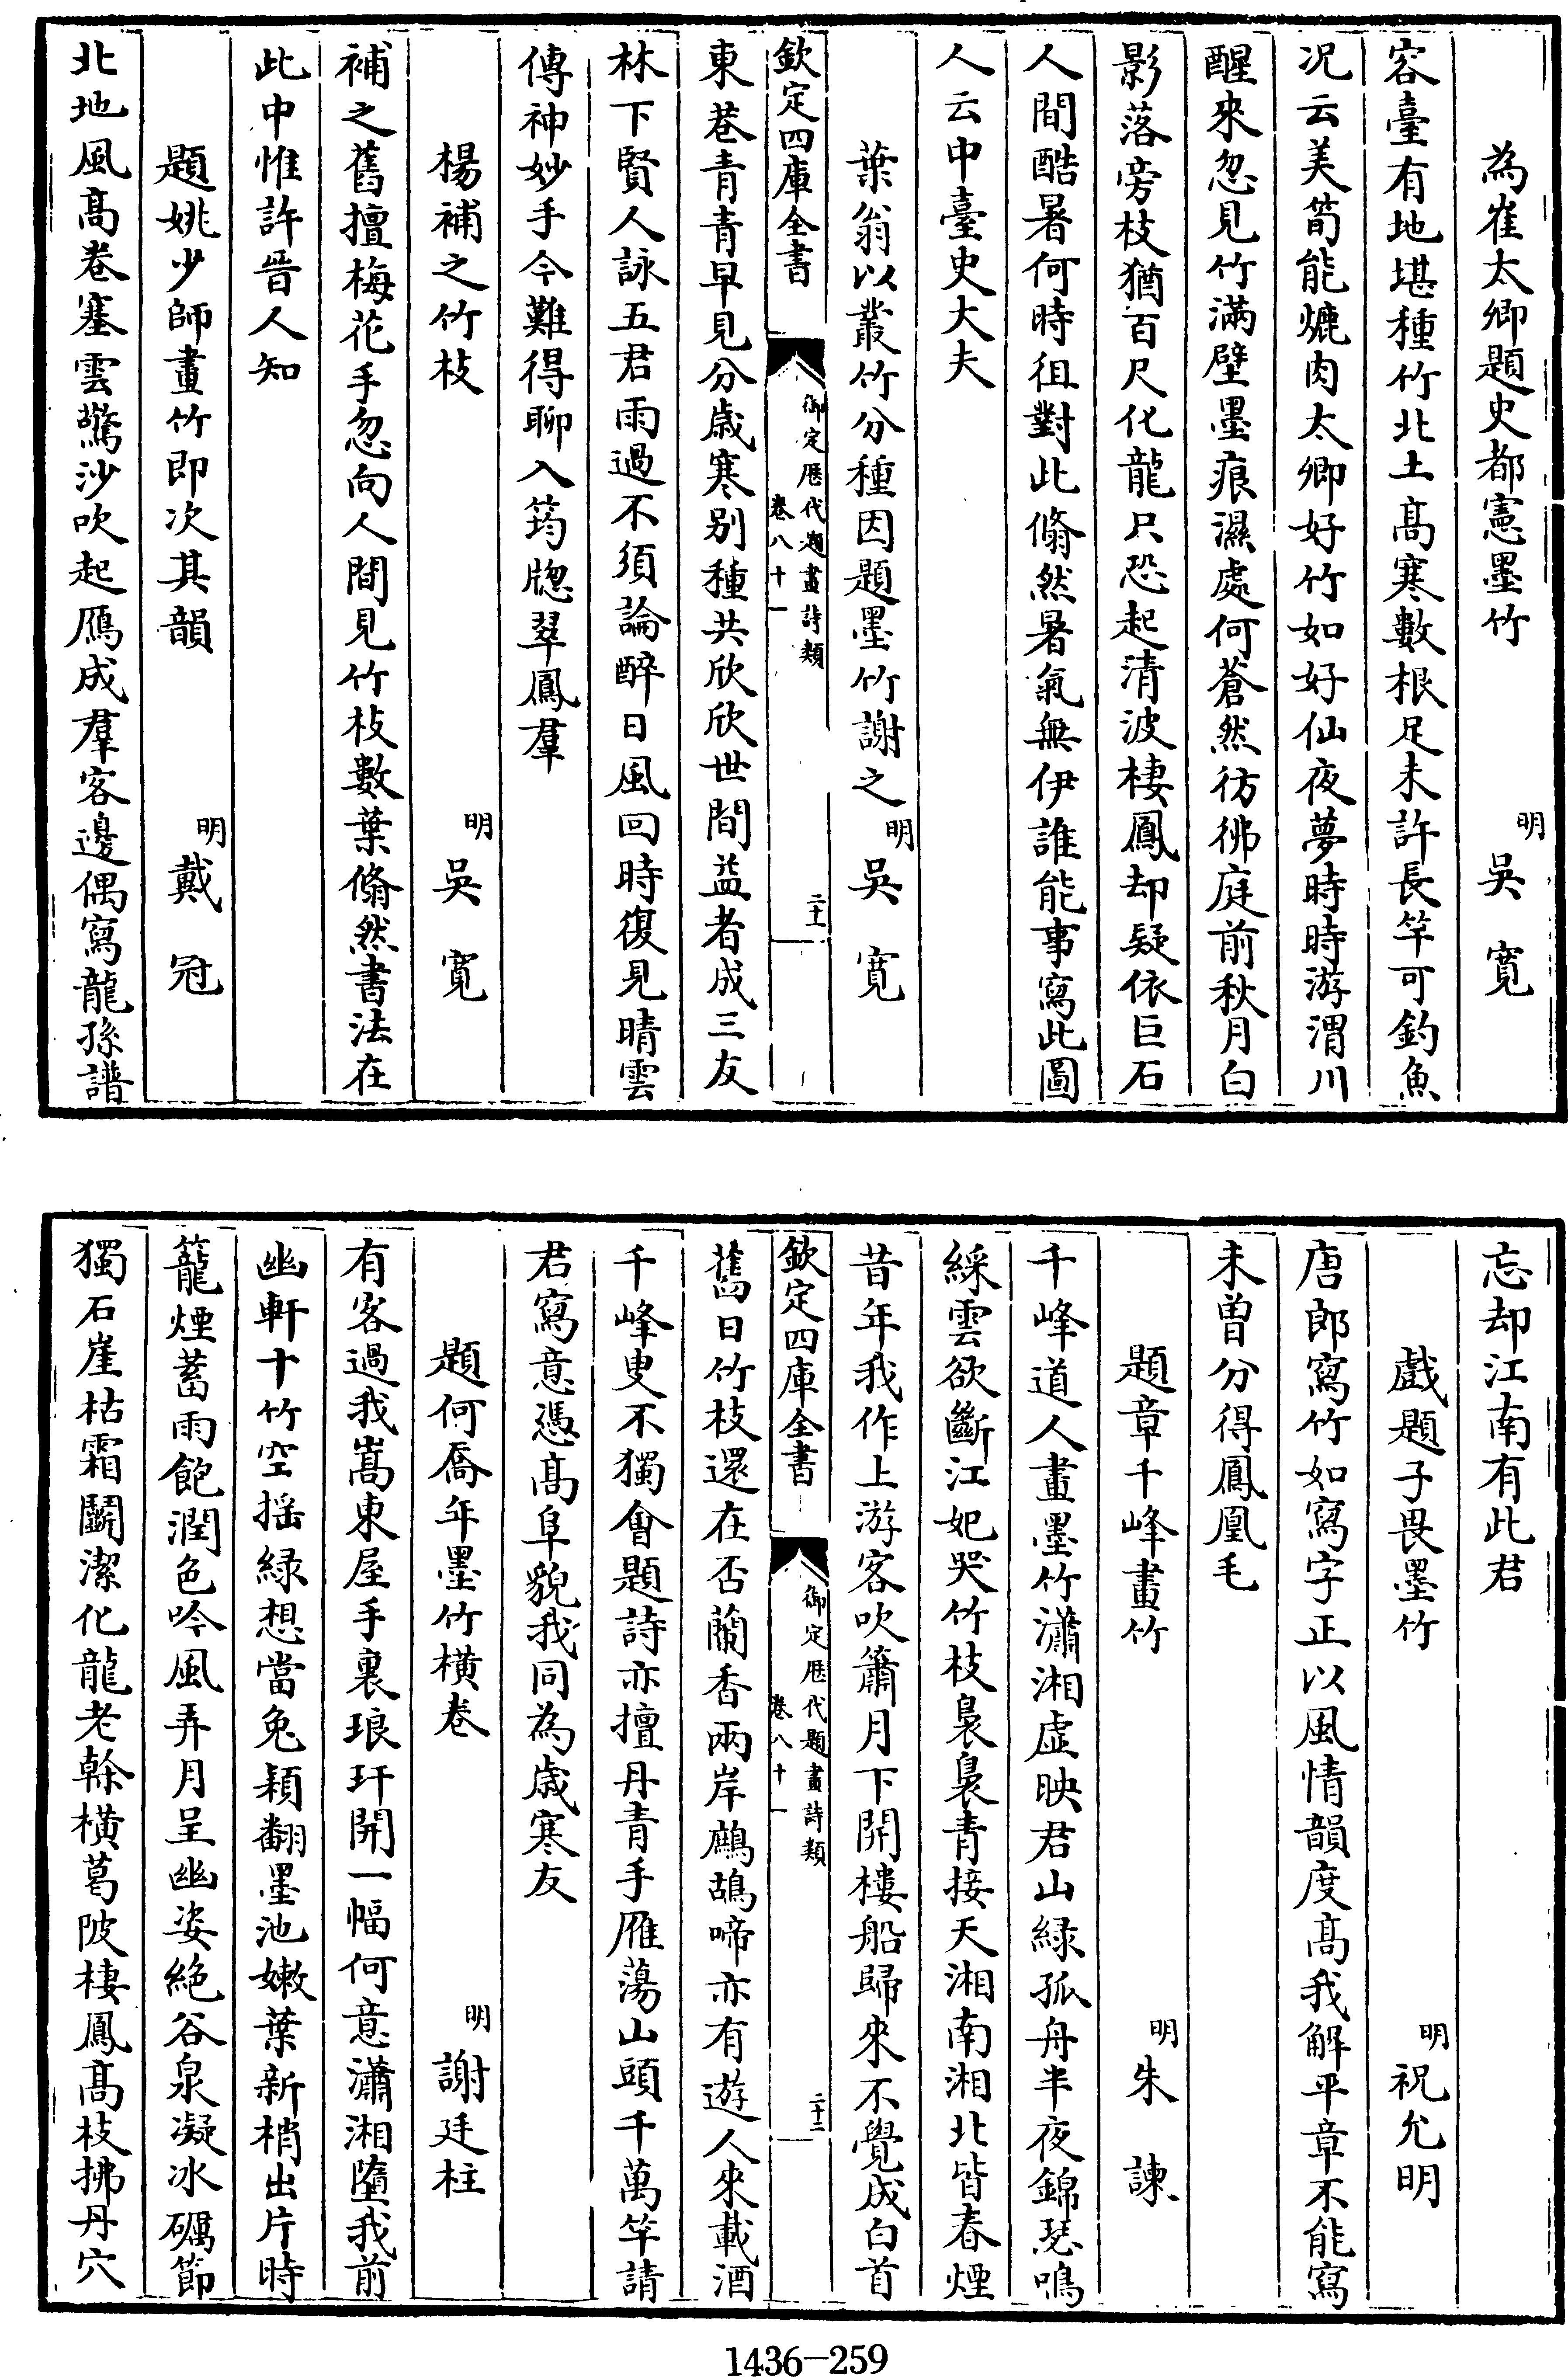 為崔太卿題史都憲墨竹　明吳寛
容臺有地堪種竹北土髙寒數根足未許長竿可釣魚
况云美筍能爊肉太卿好竹如好仙夜夢時時游渭川
醒來忽見竹滿壁墨痕濕處何蒼然彷彿庭前秋月白
影落旁枝猶百尺化龍只恐起清波棲鳳却疑依巨石
人間酷暑何時徂對此翛然暑氣無伊誰能事寫此圖
人云中臺史大夫
葉翁以叢竹分種因題墨竹謝之　明吳寛
欽定四庫全書　御定歴代題畫詩類　卷八十一　二十一
東巷青青早見分歲寒別種共欣欣世間益者成三友
林下賢人詠五君雨過不須論醉日風回時復見晴雲
傳神妙手今難得聊入筠牎翠鳳羣
楊補之竹枝　明吳寛
補之舊擅梅花手忽向人間見竹枝數葉翛然書法在
此中惟許晉人知
題姚少師畫竹即次其韻　明戴冠
北地風髙卷塞雲驚沙吹起鴈成羣客邊偶寫龍孫譜
忘却江南有此君
戲題子畏墨竹　明祝允明
唐郎寫竹如寫字正以風情韻度髙我解平章不能寫
未曽分得鳳凰毛
題章千峰畫竹　明朱諫
千峰道人畫墨竹瀟湘虚映君山緑孤舟半夜錦瑟鳴
綵雲欲斷江妃哭竹枝裊裊青接天湘南湘北皆春煙
昔年我作上游客吹簫月下開樓船歸來不覺成白首
欽定四庫全書　御定歴代題畫詩類　卷八十一　二十二
舊日竹枝還在否蘭香兩岸鷓鴣啼亦有遊人來載酒
千峰叟不獨會題詩亦擅丹青手雁蕩山頭千萬竿請
君寫意憑髙阜貌我同為歲寒友
題何喬年墨竹橫卷　明謝廷柱
有客過我嵩東屋手裏琅玕開一幅何意瀟湘墮我前
幽軒十竹空揺緑想當兔頴翻墨池嫩葉新梢出片時
籠煙蓄雨飽潤色吟風弄月呈幽姿絶谷泉凝冰礪節
獨石崖枯霜鬬潔化龍老榦橫葛陂棲鳳髙枝拂丹穴
1436—259